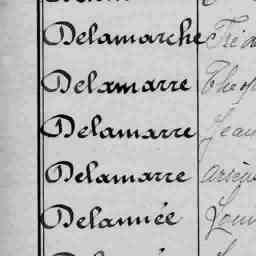 Delamarche
Delamarre Théop
Delamarre Jean
Delamarre Arsèn
Delannée Loui